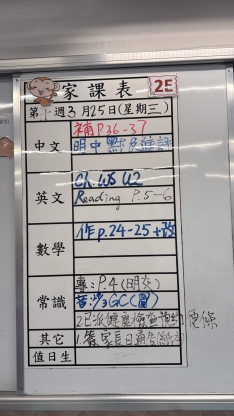 家課表 2E
第十週3月25日(星期三)
中文
補P.36-37
明中默
英文
GR. WS U2
Reading P.5-6
數學
作p.24-25+改
常識
專:P.4(明交)
GC(圖)
其它
2.已派健康檢查預約便條
1.簽家長日通告
值日生